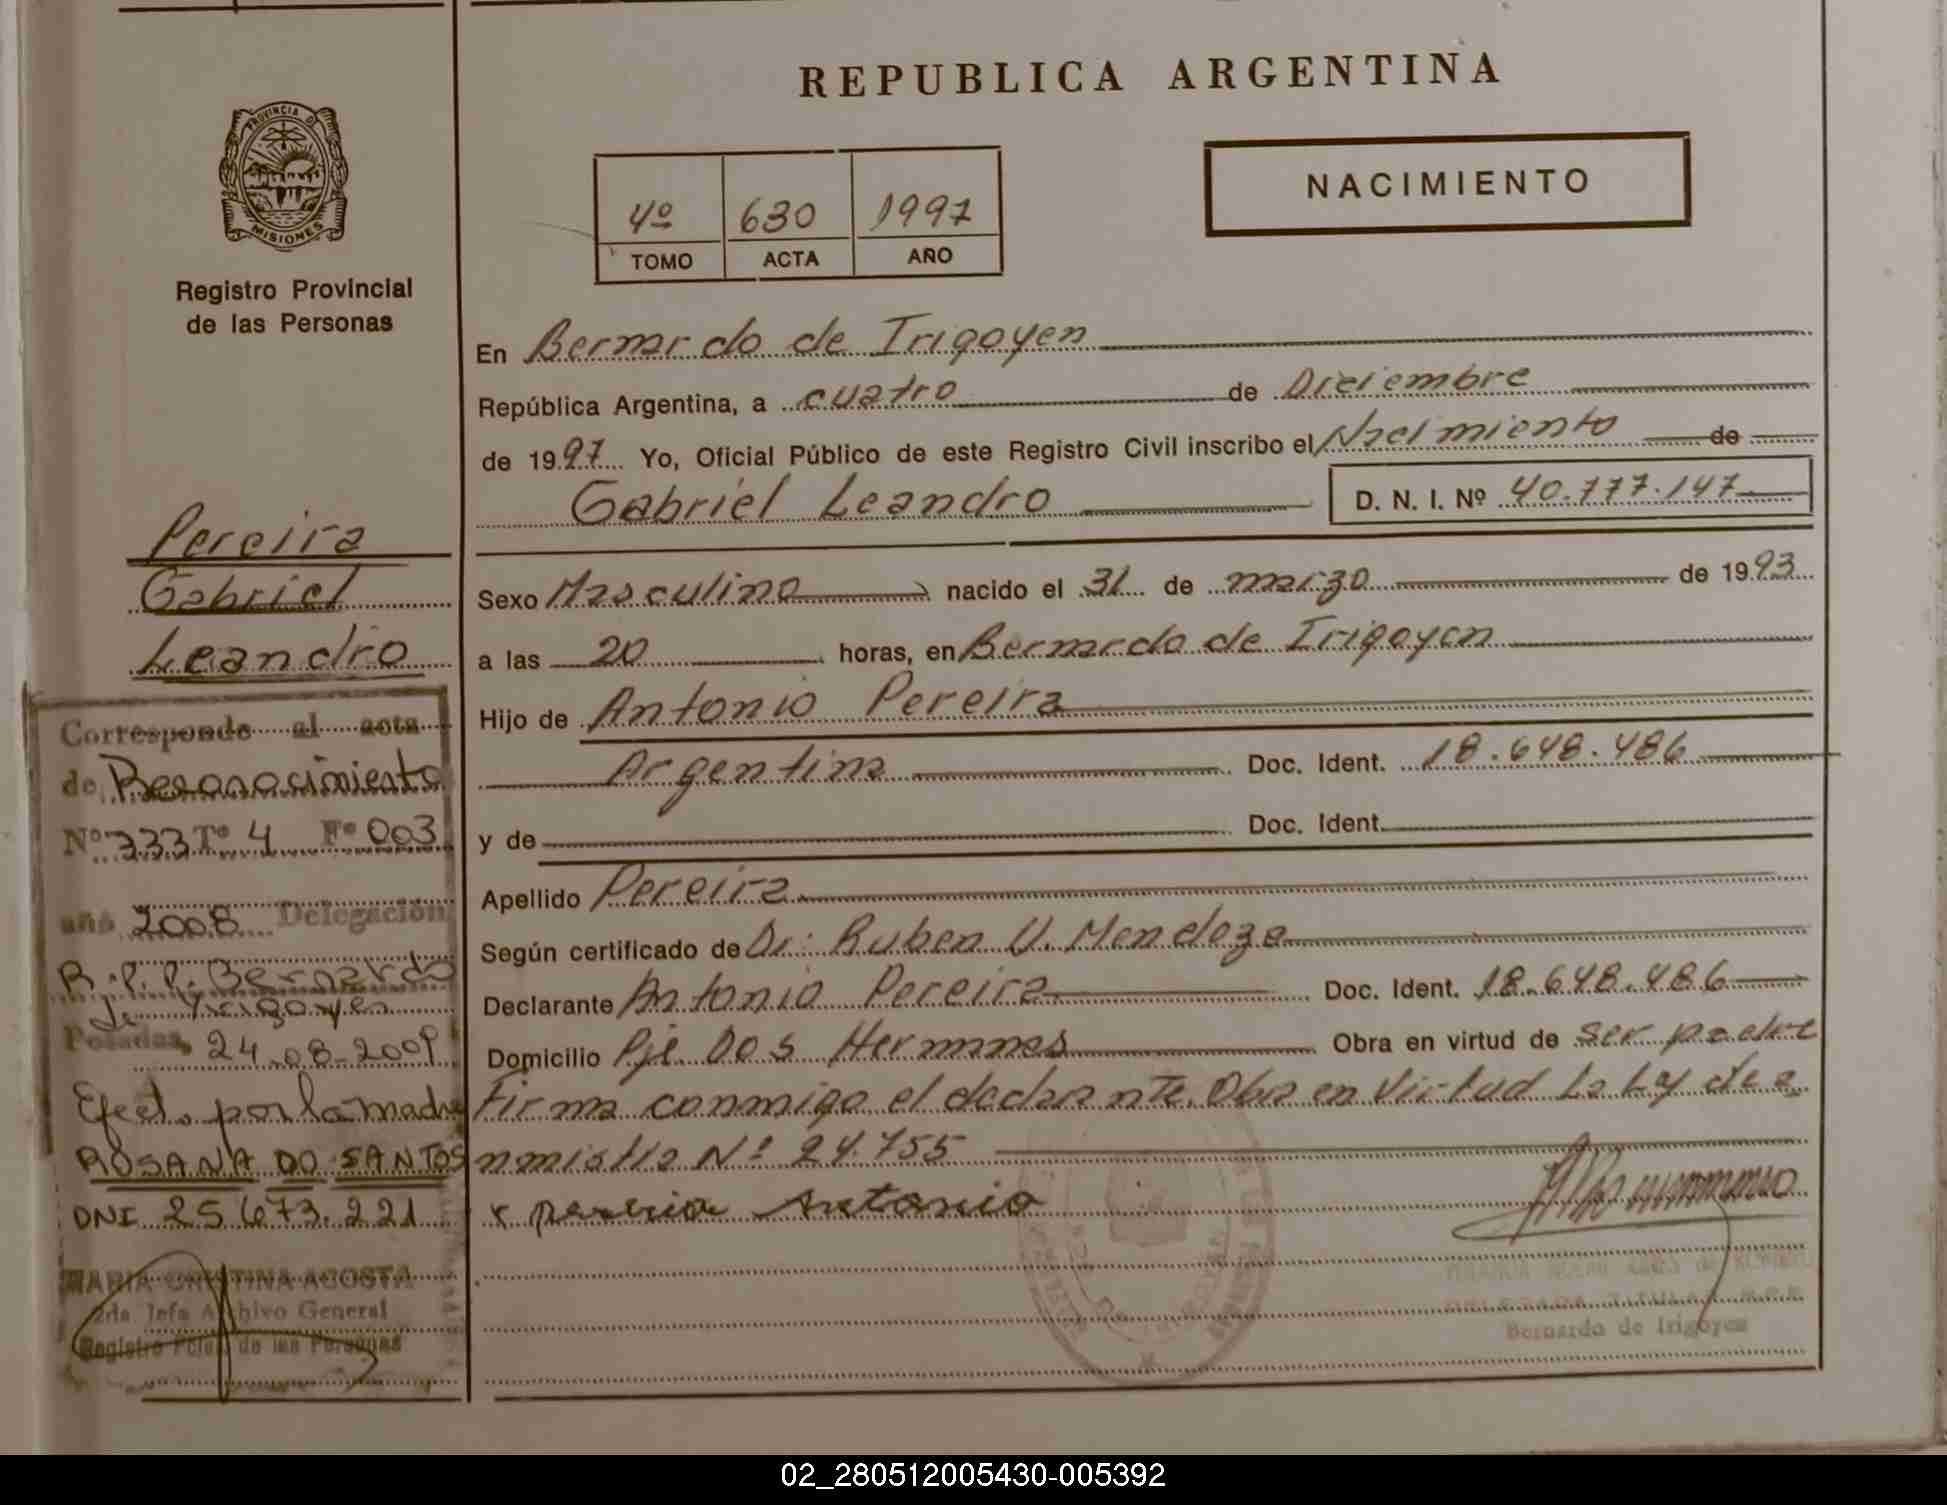 REPUBLICA ARGENTINA
PROVINCIA D
MISIONES
Registro Provincial
de las Personas
4º 630 1997
TOMO ACTA AÑO
NACIMIENTO
En Bernardo de Irigoyen
República Argentina, a cuatro de Diciembre
de 1997 Yo, Oficial Público de este Registro Civil inscribo el Nacimiento de
Gabriel Leandro D. N. I. Nº 40.777.147
Sexo Masculino nacido el 31 de marzo de 1993
a las 20 horas, en Bernardo de Irigoyen
Hijo de Antonio Pereira
Argentina Doc. Ident. 18.648.486
y de Doc. Ident.
Apellido Pereira
Según certificado de Dr. Ruben V. Mendoza
Declarante Antonio Pereira Doc. Ident. 18.648.486
Domicilio Pje Dos Hermanas Obra en virtud de ser padre
Firma conmigo el declarante. Obra en Virtud La Ley de a
nmistia Nº 24.755
x pereira Antonio
Bernardo de Irigoyen
Pereira
Gabriel
Leandro
Corresponde al acta
de Reconocimiento
Nº 333 Tº 4 Fº 003
año 2008 Delegación
R.P.P. Bernardo
de Yrigoyen
Posadas, 24-08-2009
Efect. por la madre
ROSANA DO SANTOS
DNI 25.673.221
MARIA CRISTINA ACOSTA
2da Jefa Archivo General
Registro Pcial. de las Personas
02_280512005430-005392